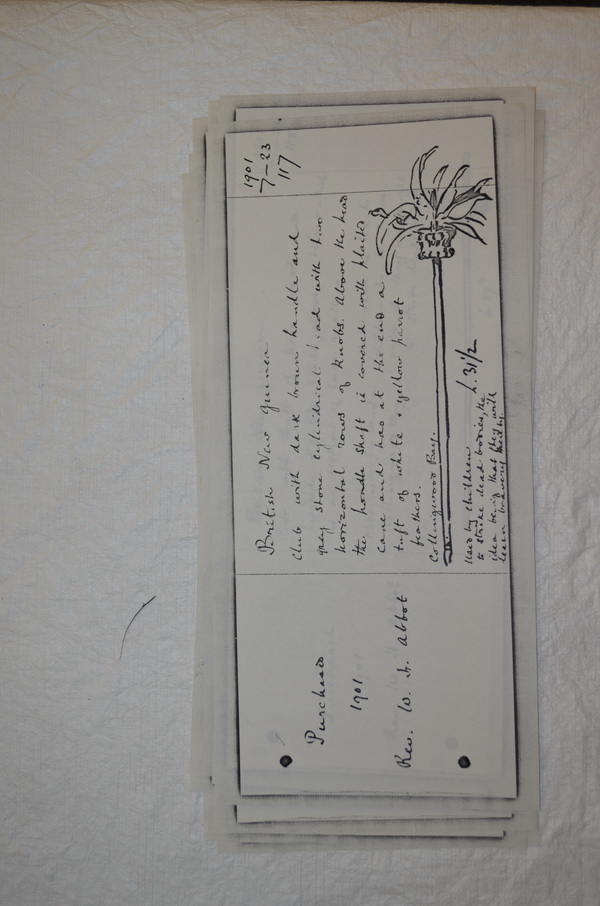 Purchased
1901
Rev. W. H. Abbot
British New Guinea
Club with dark brown handle and
grey stone cylindrical head with two
horizontal rows of knobs. Above the head
the handle shaft is covered with plaited
cane and has at the end a
tuft of white & yellow parrot
feathers.
Collingwood Bay.
Used by children
to strike dead bodies, the
idea being that they will
learn bravery thereby
L. 31/2
1901
7-23
117